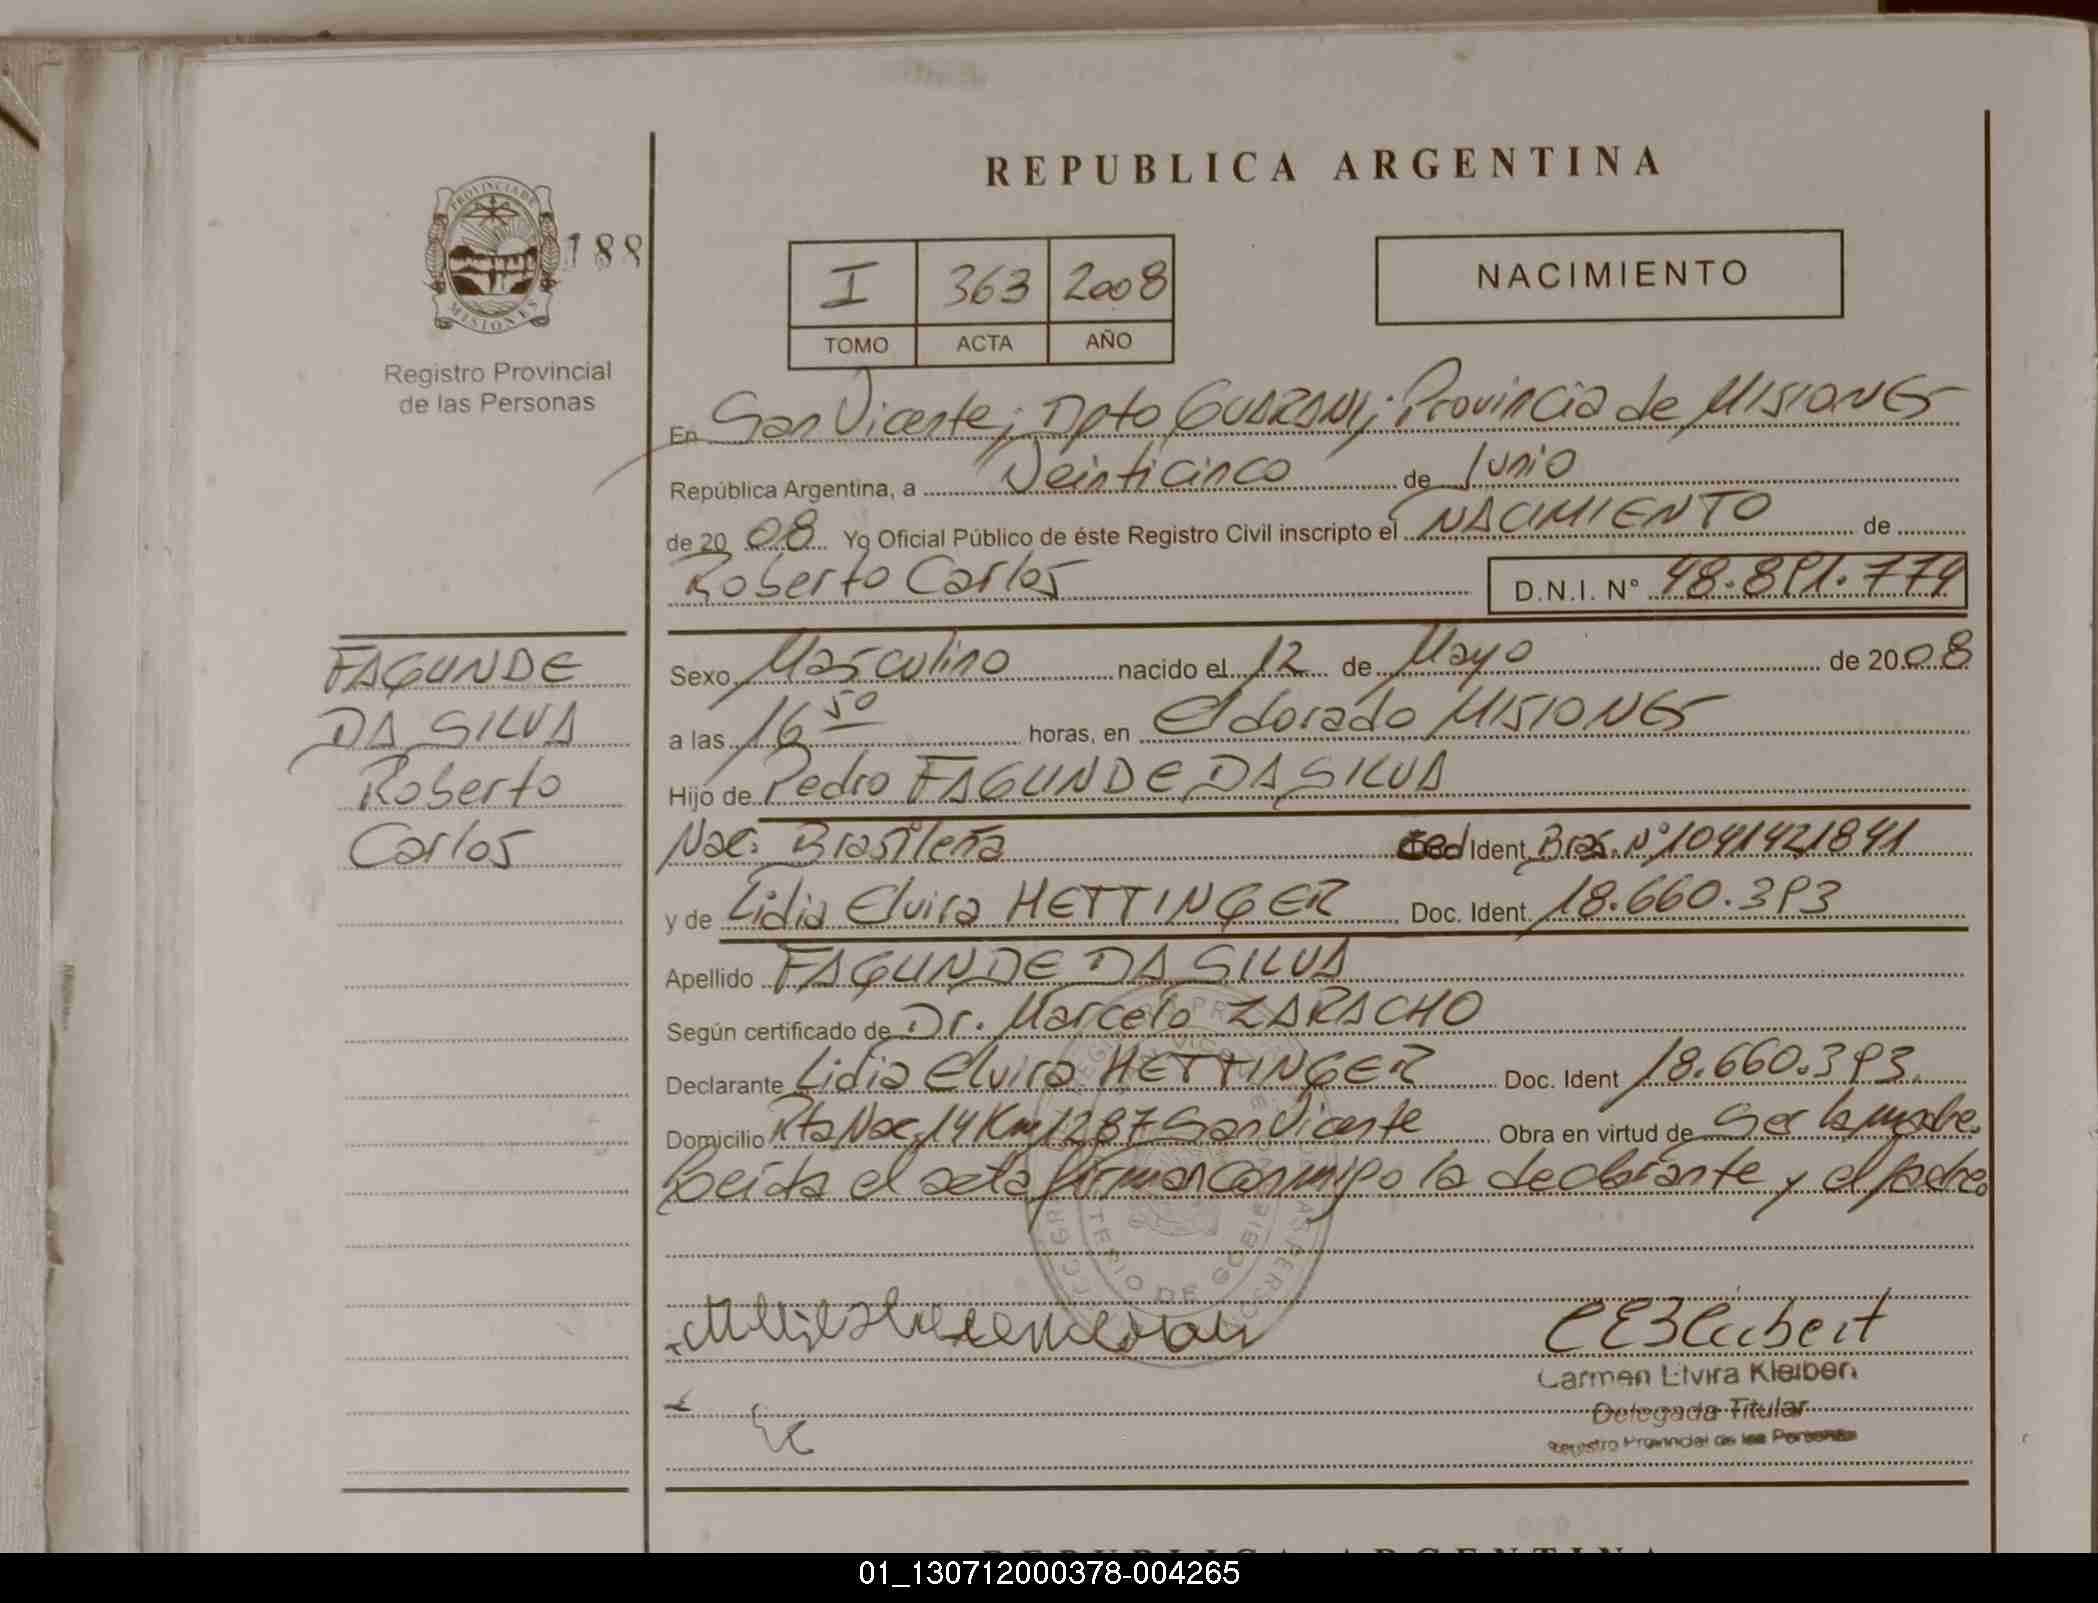 REPUBLICA ARGENTINA
PROVINCIA DE
MISIONES
188
Registro Provincial
de las Personas
I 363 2008
TOMO ACTA AÑO
NACIMIENTO
En San Vicente; Dpto GUARANI; Provincia de MISIONES
República Argentina, a Veinticinco de Junio
de 20 08 Yo Oficial Público de éste Registro Civil inscripto el NACIMIENTO de
Roberto Carlos D.N.I. N° 48.891.774
FAGUNDE
DA SILVA
Roberto
Carlos
Sexo Masculino nacido el 12 de Mayo de 20 08
a las 16 50 horas, en Eldorado MISIONES
Hijo de Pedro FAGUNDE DA SILVA
Nac: Brasileña Ced Ident Bras. N° 1041421841
y de Lidia Elvira HETTINGER Doc. Ident. 18.660.393
Apellido FAGUNDE DA SILVA
Según certificado de Dr. Marcelo ZARACHO
Declarante Lidia Elvira HETTINGER Doc. Ident 18.660.393.
Domicilio Rta Nac. 14 Km 1287 San Vicente Obra en virtud de Ser la madre.
Leída el acta firman conmigo la declarante y el padre.
Carmen Elvira Kleibert
Delegada Titular
Registro Provincial de las Personas
REPUBLICA ARGENTINA
01_130712000378-004265